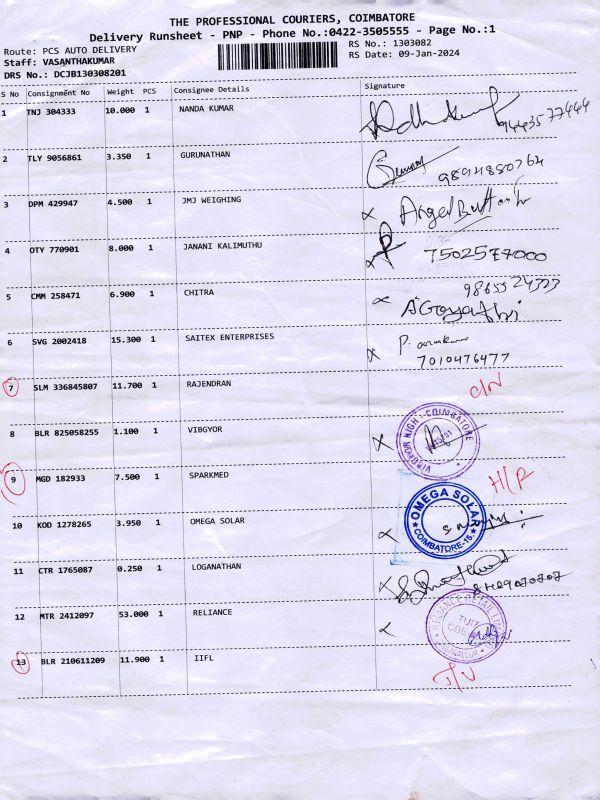 THE PROFESSIONAL COURIERS, COIMBATORE
Delivery Runsheet - PNP - Phone No.:0422-3505555 - Page No.:1
Route: PCS AUTO DELIVERY RS No.: 1303082
Staff: VASANTHAKUMAR RS Date: 09-Jan-2024
DRS No.: DCJB130308201
S No Consignment No Weight PCS Consignee Details Signature
1 TNJ 304333 10.000 1 NANDA KUMAR
9443577444
2 TLY 9056861 3.350 1 GURUNATHAN
9894880764
3 DPM 429947 4.500 1 JMJ WEIGHING
4 OTY 770901 8.000 1 JANANI KALIMUTHU
7502577000
5 CMM 258471 6.900 1 CHITRA 9865524323
A Gayathri
6 SVG 2002418 15.300 1 SAITEX ENTERPRISES
7010476477
7 SLM 336845807 11.700 1 RAJENDRAN
8 BLR 825058255 1.100 1 VIBGYOR
VIBGYOR HIGH - COIMBATORE
9 MGD 182933 7.500 1 SPARKMED
10 KOD 1278265 3.950 1 OMEGA SOLAR
OMEGA SOLAR
COIMBATORE-15
11 CTR 1765087 0.250 1 LOGANATHAN
12 MTR 2412097 53.000 1 RELIANCE
13 BLR 210611209 11.900 1 IIFL